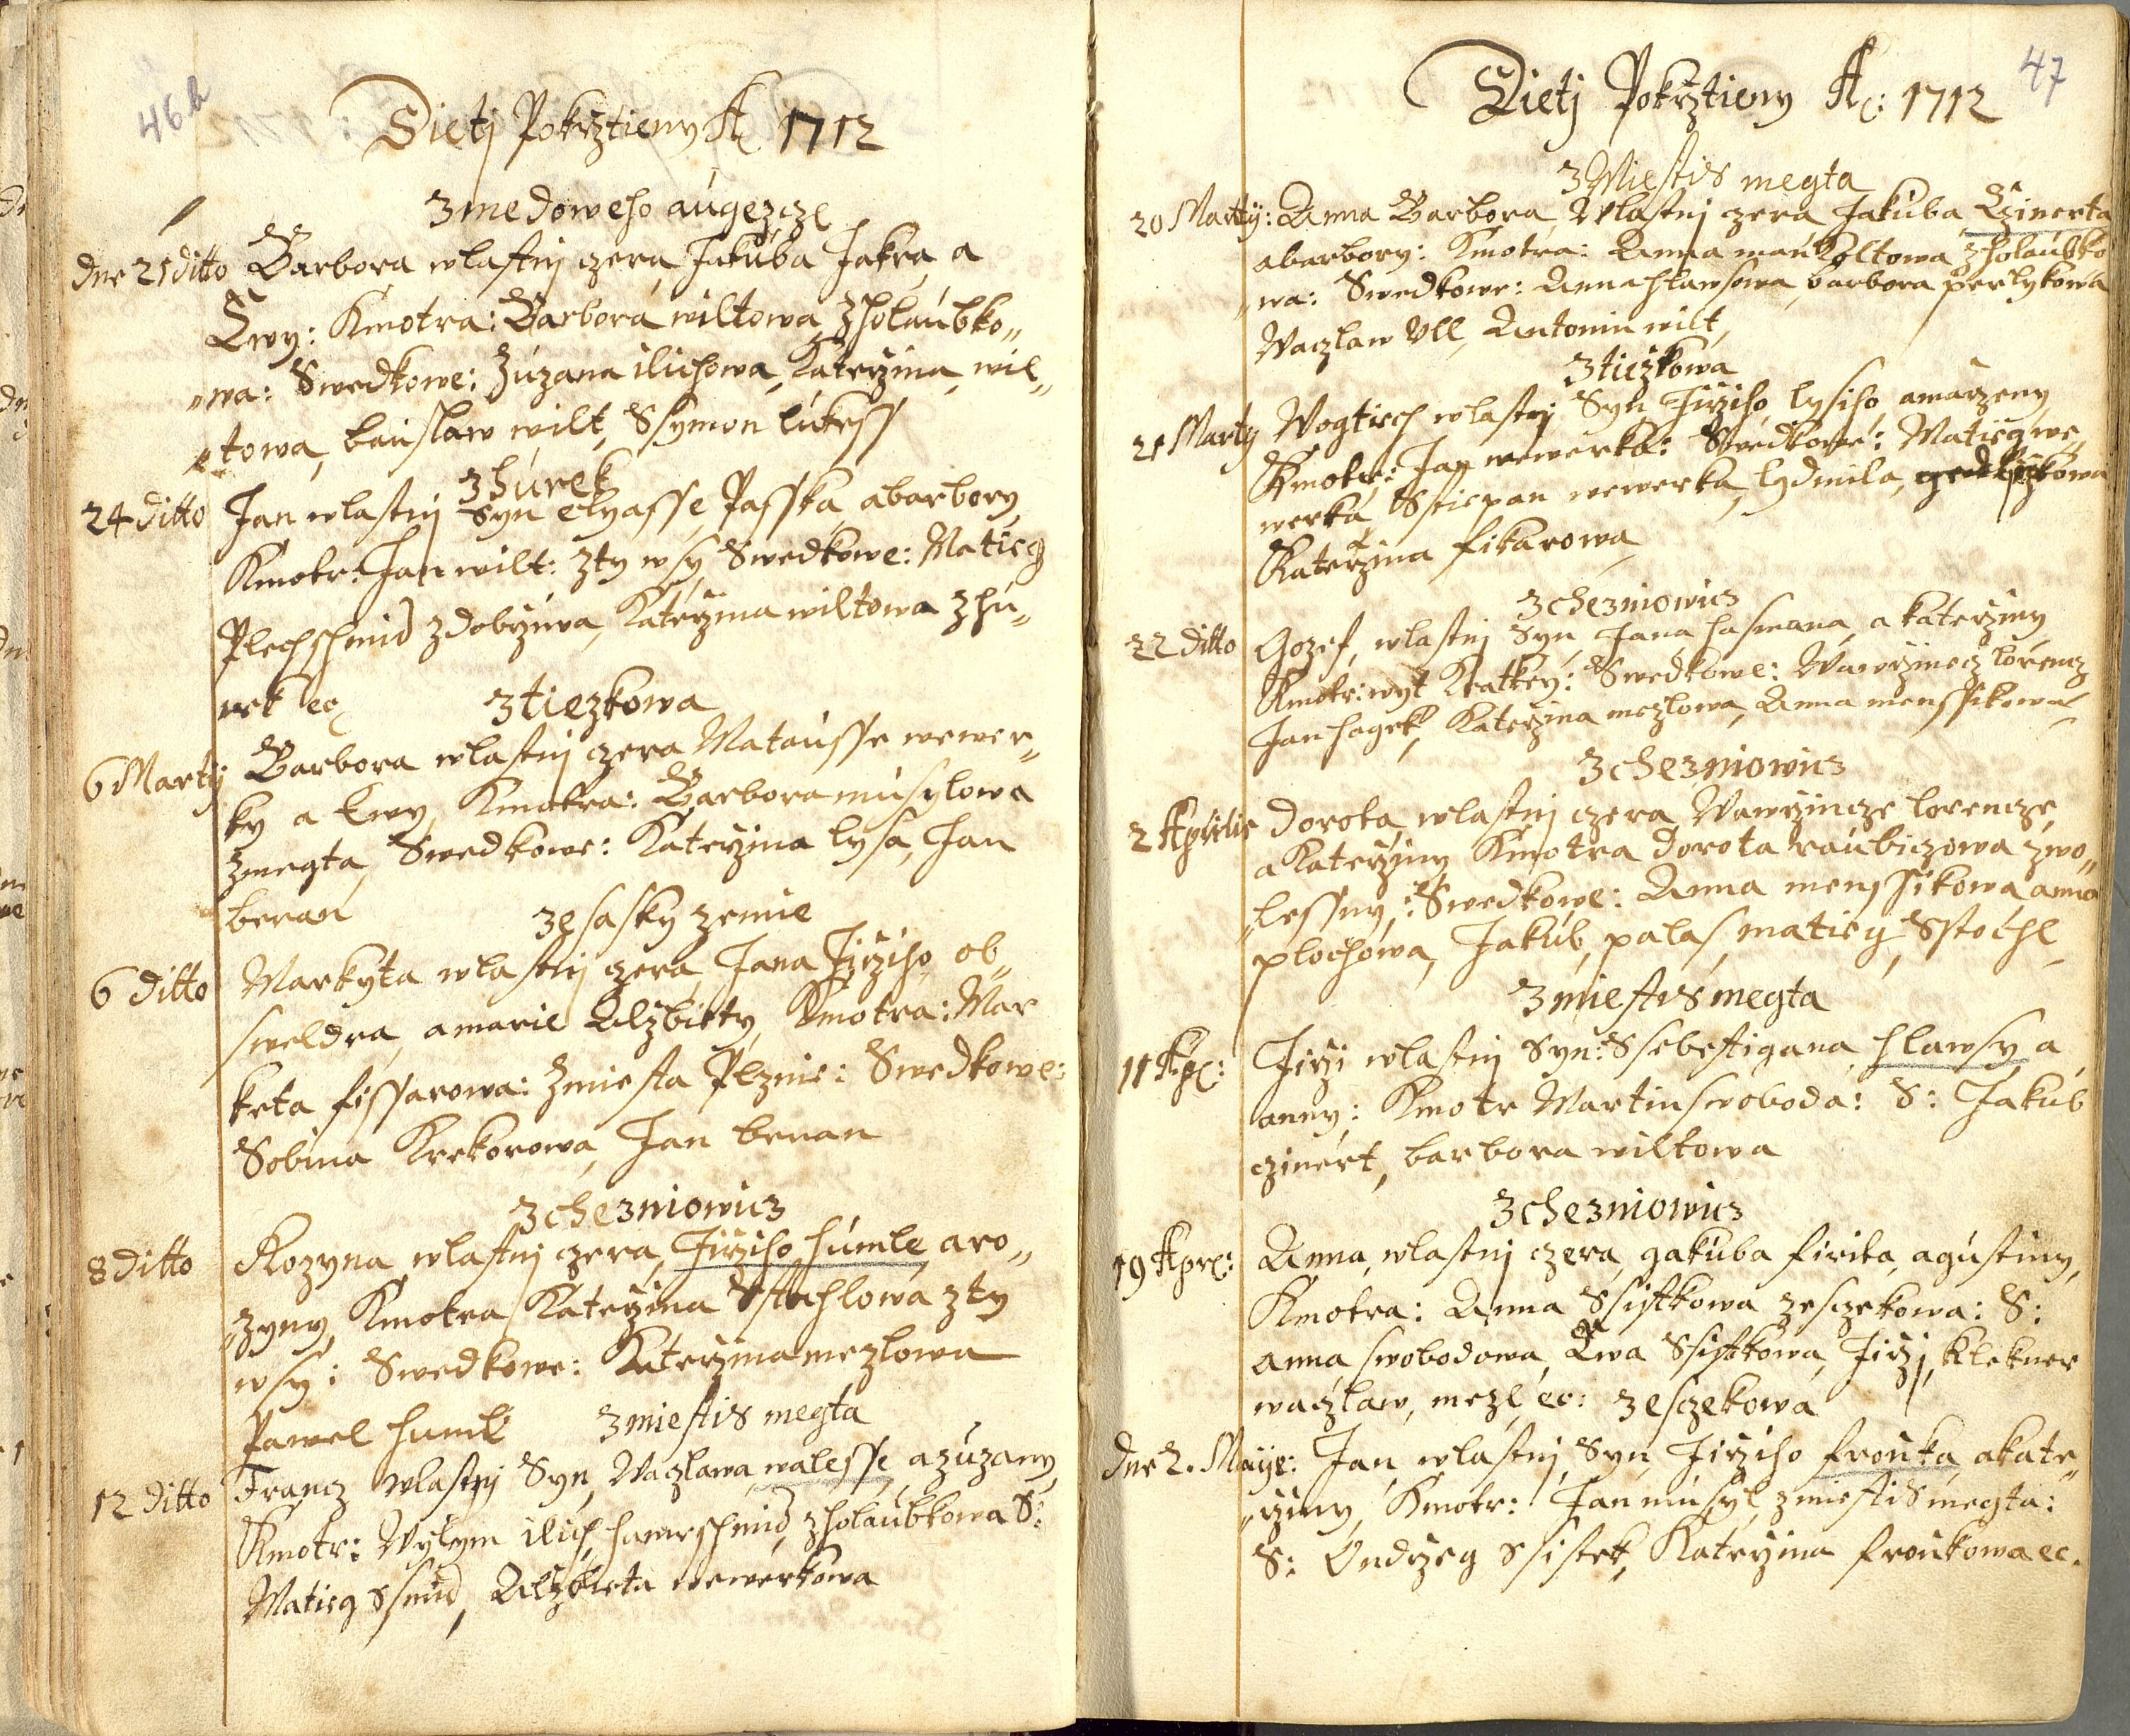 46.b
Dietj Pokrztieny A: 1712
z medoweho augezcze
dne 21 ditto Barbora wlastnj czera Jakuba Jakra, a
Ewy: Kmotra: Barbora wiltowa z holaubko„
„wa: Swedkowe: Zuzana ilichowa, Katerzina, wil„
„towa, bauslaw wilt, Ssymon lukess
z hurek
24 ditto Jan wlastnj Syn elyasse Passka, a barbory,
Kmotr: Jan wilt: z ty wsy Swedkowe: Matieg
Plechschmid z dobrziwa, Katerzina wiltowa z hu„
rek ec
z tiezkowa
6 Martj Barbora wlastnj czera Matausse wewer„
ky a Ewy, Kmotra: Barbora musylowa
z megta, Swedkowe: Katerzina lysa, Jan
beran
ze sasky zemie
6 ditto Markyta wlastnj czera Jana Jirziho ob„
sweldra, a marie Alzbiety, Kmotra: Mar
keta fissarowa: z miesta Plznie: Swedkowe:
Sobina Krekorowa, Jan beran
z chezniowicz
8 ditto Rozyna wlastnj czera, Jirziho humle, a ro„
„zyny, Kmotra Katerzina Sstochlowa z ty
wsy: Swedkowe: Katerzina mezlowa
Pawel huml
z miestis megta
12 ditto Francz wlastnj Syn, Waczlawa walesse, a zuzany,
Kmotr: Wylym ilich, hamrschmid, z holaubkowa S:
Matieg Ssmid, Alzbieta wewerkowa
47
Dietj Pokrztieny A: 1712
z Miestis megta
20 Martij: Anna Barbora, Wlastnj czera, Jakuba Czinerta
a barbory: Kmotra: Anna mari Koltowa z holaubko
„wa: Swedkowe: Anna hlawsowa, barbora perlykowa
Waczlaw Ull, Antonin wilt,
z tiezkowa
21 Martij Wogtiech wlastnj Syn Jirziho lysiho, a marzeny
Kmotr: Jan wewerka: Swedkowe: Matieg we„
werka, Sstiepan wewerka, lydmila,
Katerzina fikarowa
z chezniowicz
22 ditto Gozef, wlastnj Syn, Jana hasmana, a katerziny
Kmotr: wyt Kratkey: Swedkowe: Wawrzinecz lorencz
Jan hagek, Katerzina mezlowa, Anna menssikowa
z cheznowicz
2 Aprilis Dorota, wlastnj czera Wawrzincze lorencze,
a Katerziny Kmotra dorota raubiczowa z wo„
„lessny,: Swedkowe: Anna menssikowa anna
plochowa, Jakub, palas, matieg Sstochl
z miestis megta
11 Apr: Jirzi wlastnj Syn: Ssebestigana hlawsy, a
anny: Kmotr Martin swoboda: S: Jakub
czinert, barbora wiltowa
z cheznowicz
19 Apr: Anna, wlastnj czera, gakuba firita, agustiny,
Kmotra: Anna Ssistkowa ze sczekowa: S:
anna, swobodowa, Ewa Ssistkowa, Jirzj, Klekner
waczlaw, mezl, ec: ze sczekowa
dne 2. Maye: Jan, wlastnj Syn, Jirziho frouka, a kate„
„rziny, Kmotr: Jan musyl z miestis megta:
S: Ondrzeg Ssistek, Katerzina froukowa ec.